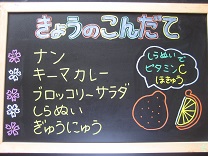 きょうのこんだて
ナン
キーマカレー
ブロッコリーサラダ
しらぬい
ぎゅうにゅう
しらぬいで
ビタミンC
ほきゅう